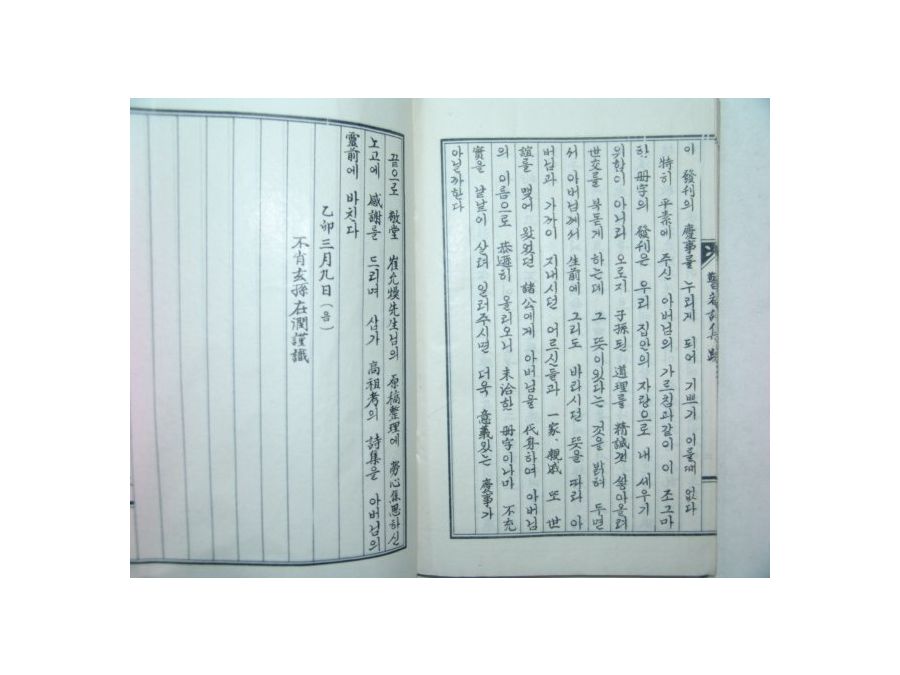 이 發刊의 慶事를 누리게 되어 기쁘기 이를때 없다
特히 平素에 주신 아버님의 가르침과같이 이 조그마
한 冊字의 發刊은 우리 집안의 자랑으로 내 세우기
위함이 아니라 오로지 子孫된 道理를 精誠껏 쌓아올려
世交를 북돋게 하는데 그 뜻이있다는 것을 밝혀 두면
서 아버님께서 生前에 그리도 바라시던 뜻을 따라 아
버님과 가까이 지내시던 어르신들과 一家、親戚 또 世
誼를 맺어 왔었던 諸公에게 아버님을 代身하여 아버님
의 이름으로 恭遜히 올리오니 未洽한 冊字이나마 不充
實을 낱낱이 살펴 일러주시면 더욱 意義있는 慶事가
아닐까한다
끝으로 敬堂 崔允 先生님의 原稿整理에 勞心焦思하신
노고에 感謝를 드리며 삼가 高祖考의 詩集을 아버님의
靈前에 바치다
乙卯三月九日(음)
不肖玄孫在潤謹識